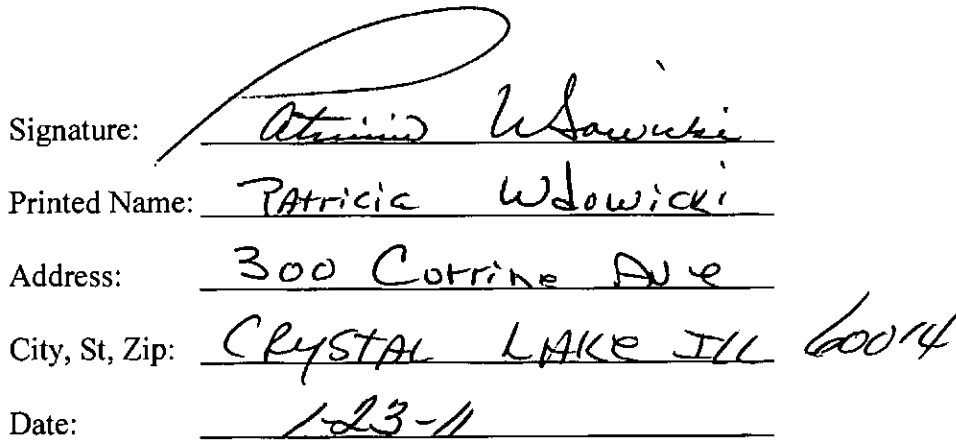 Signature: Patricia Wdowicki
Printed Name: PAtricia Wdowicki
Address: 300 Corrine Ave
City, St, Zip: CRYSTAL LAKE Ill 60014
Date: 1-23-11